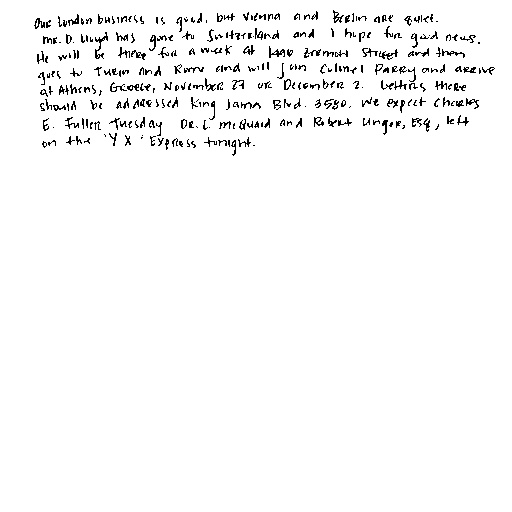 Our London business is good, but Vienna and Berlin are quiet.
Mr. D. Lloyd has gone to Switzerland and I hope for good news.
He will be there for a week at 1496 Zermott Street and then
goes to Turin and Rome and will join Colonel Parry and arrive
at Athens, Greece, November 27 or December 2. Letters there
should be addressed King James Blvd. 3580. We expect Charles
E. Fuller Tuesday. Dr. L. McQuaid and Robert Unger, Esq., left
on the "Y X" Express tonight.